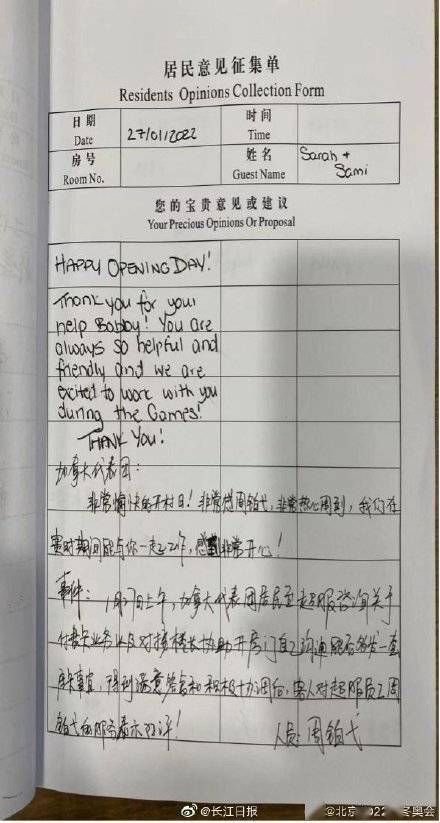 居民意见征集单
Residents Opinions Collection Form
日期
Date
27/01/2022
时间
Time
房号
Room No.
姓名
Guest Name
Sarah +
Sami
您的宝贵意见或建议
Your Precious Opinions Or Proposal
HAPPY OPENING DAY!
Thank you for your
help Bobby! You are
always so helpful and
friendly and we are
excited to work with you
during the Games!
THANK YOU!
加拿大代表团:
非常愉快的开村日!非常感周铂弋,非常热心周到,我们在
赛时期间能与你一起工作,感到非常开心!
事件:1月27日上午,加拿大代表团居民至起服咨询关于
付费卡业务以及对接楼长协助开房门自己沟通能否签发一套
房卡事宜,得到满意答言和积极协调后,客人对起服员工周
铂弋的服务表示好评!
人员:周铂弋
@长江日报
@北京2022年冬奥会